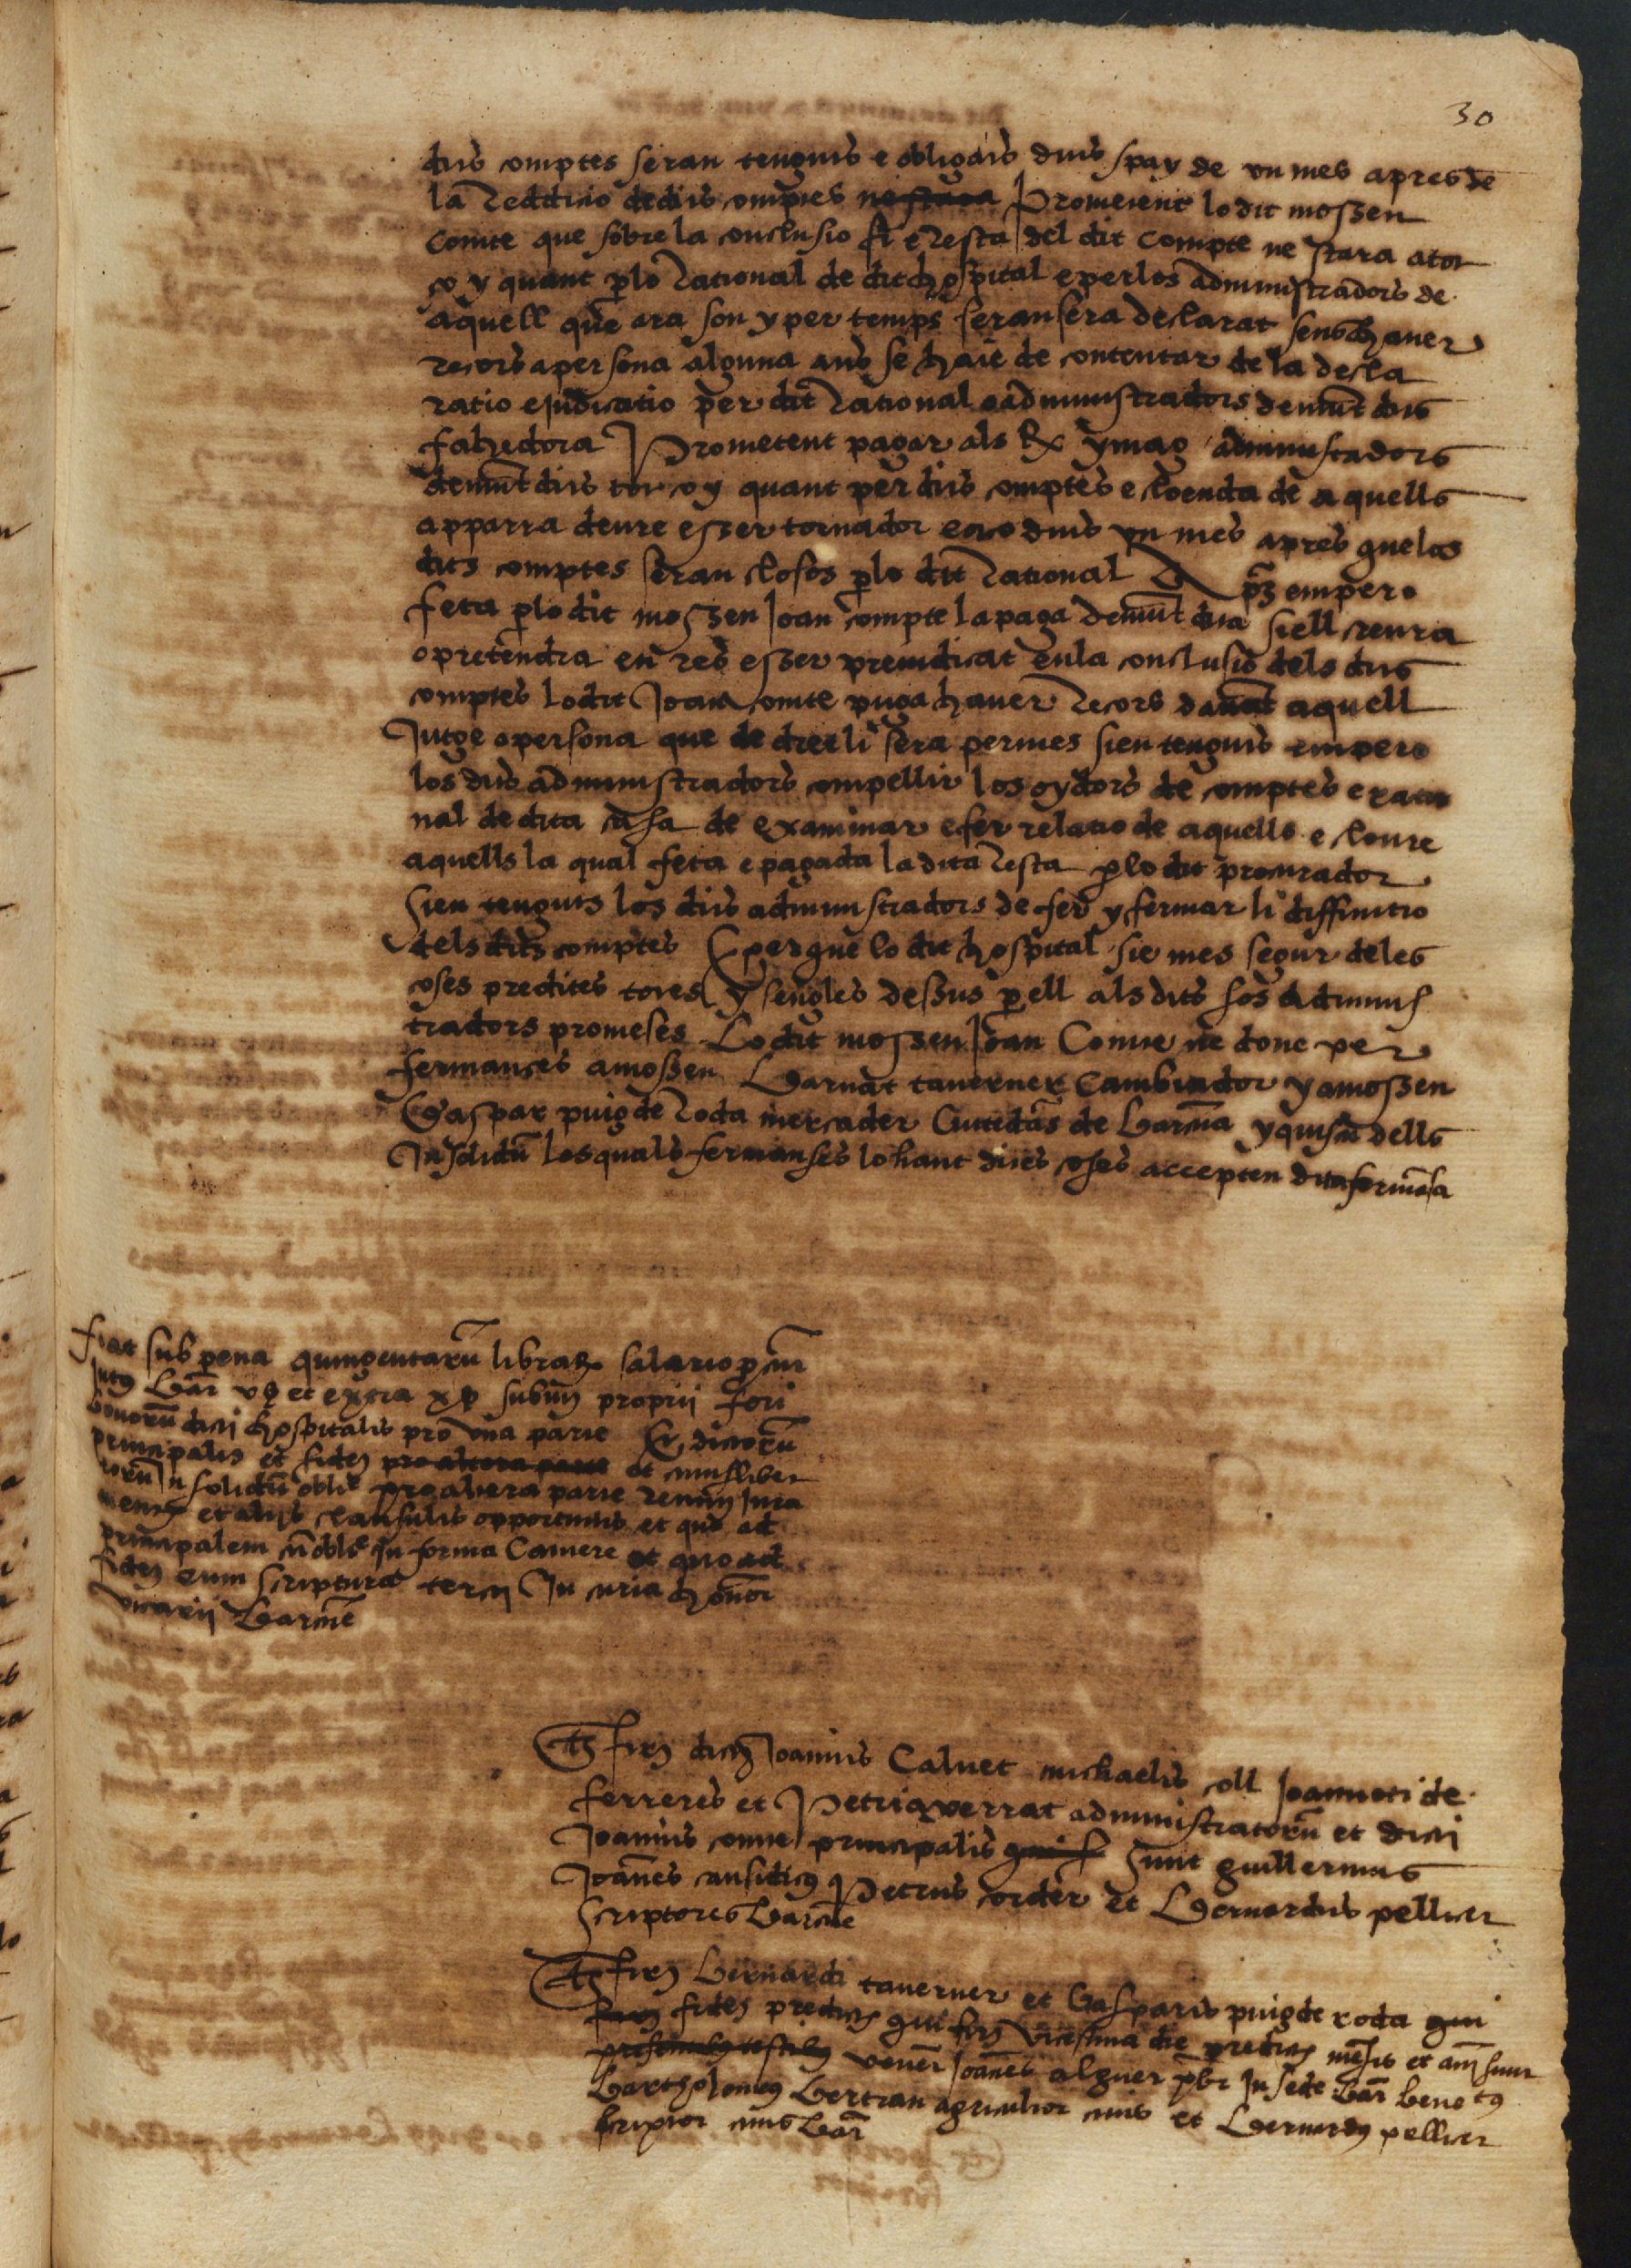 30
dits comptes seran tenguts e obligats dins spay de un mes apres de
la reddicio de dits comptes ne stara Prometent lo dit mossen
Comte que sobre la conclusio fi e resta del dit Compte ne stara a tot
ço y quant per lo rational de dit hospital e per los administradors de
aquell que ara son y per temps seran sera declarat sens haver
recors a persona alguna ans se haie de contentar de la decla
ratio e judicatio per dit rational e administradors demunt dits
fahedora Prometent pagar als Rx y mag administradors
demunt dits tot ço y quant per dits comptes e cloenda de aquells
apparra deure esser tornador e aço dins un mes apres que los
dits comptes seran closos per lo dit rational empero
feta per lo dit mossen Joan Compte la paga demunt dita si ell creura
o pretendra en res esser preiudicat en la conclusio dels dits
comptes lo dit Joan comte puga haver recors davant aquell
Jutge o persona que de dret li sera permes sien tenguts empero
los dits administradors compellir los oydors de comptes e ratio
nal de dita casa de examinar e fer relatio de aquells e cloure
aquells la qual feta e pagada la dita resta per lo dit procurador
sien tenguts los dits administradors de fer y fermar li diffinitio
dels dits comptes E perque lo dit hospital sie mes segur de les
coses predites totes y sengles dessus per ell als dits sos adminis
tradors promeses Lo dit mossen Joan Comte ne done per
fermances a mossen Barnat taverner Cambiador y a mossen
Gaspar puig de roda mercader Ciutedans de Barcna y quiscu dells
In solidum los quals fermanses lohant dites coses accepten dita fermansa
fiat sub pena quingentarum librar salario procur
intus Bar v s et extra x s submis proprii fori
bonorum dicti hospitalis pro una parte Et dictorum
principalis et fidej pro altera parte et cuiuslibet
eorum In solidum oblig pro altera parte renun Jura
mento et aliis clausulis opportunis et quo ad
principalem cum oblig in forma Camere et quo ad
fidej cum scriptura tercii In curia honor
vicarii Barcne
Ts firm dictor Joannis Calvet michaelis coll Joannoti de
ferreres et Petri averrat administratorum et dicti
Joannis comte principalis qui f sunt guillermus
Joanes causidicus Petrus corder et Bernardus pellicer
scriptores Barcne
Ts firm Bernardi taverner et Gasparis puig de roda qui
firm fidej predictor qui firm vicesima die predictor mensis et anni sunt
presentibus testibus vener Joanes alguer pbr In sede Bar benetus
Bartholomeus Bertran agricultor civis et Bernardus pellicer
scriptor civis Bar